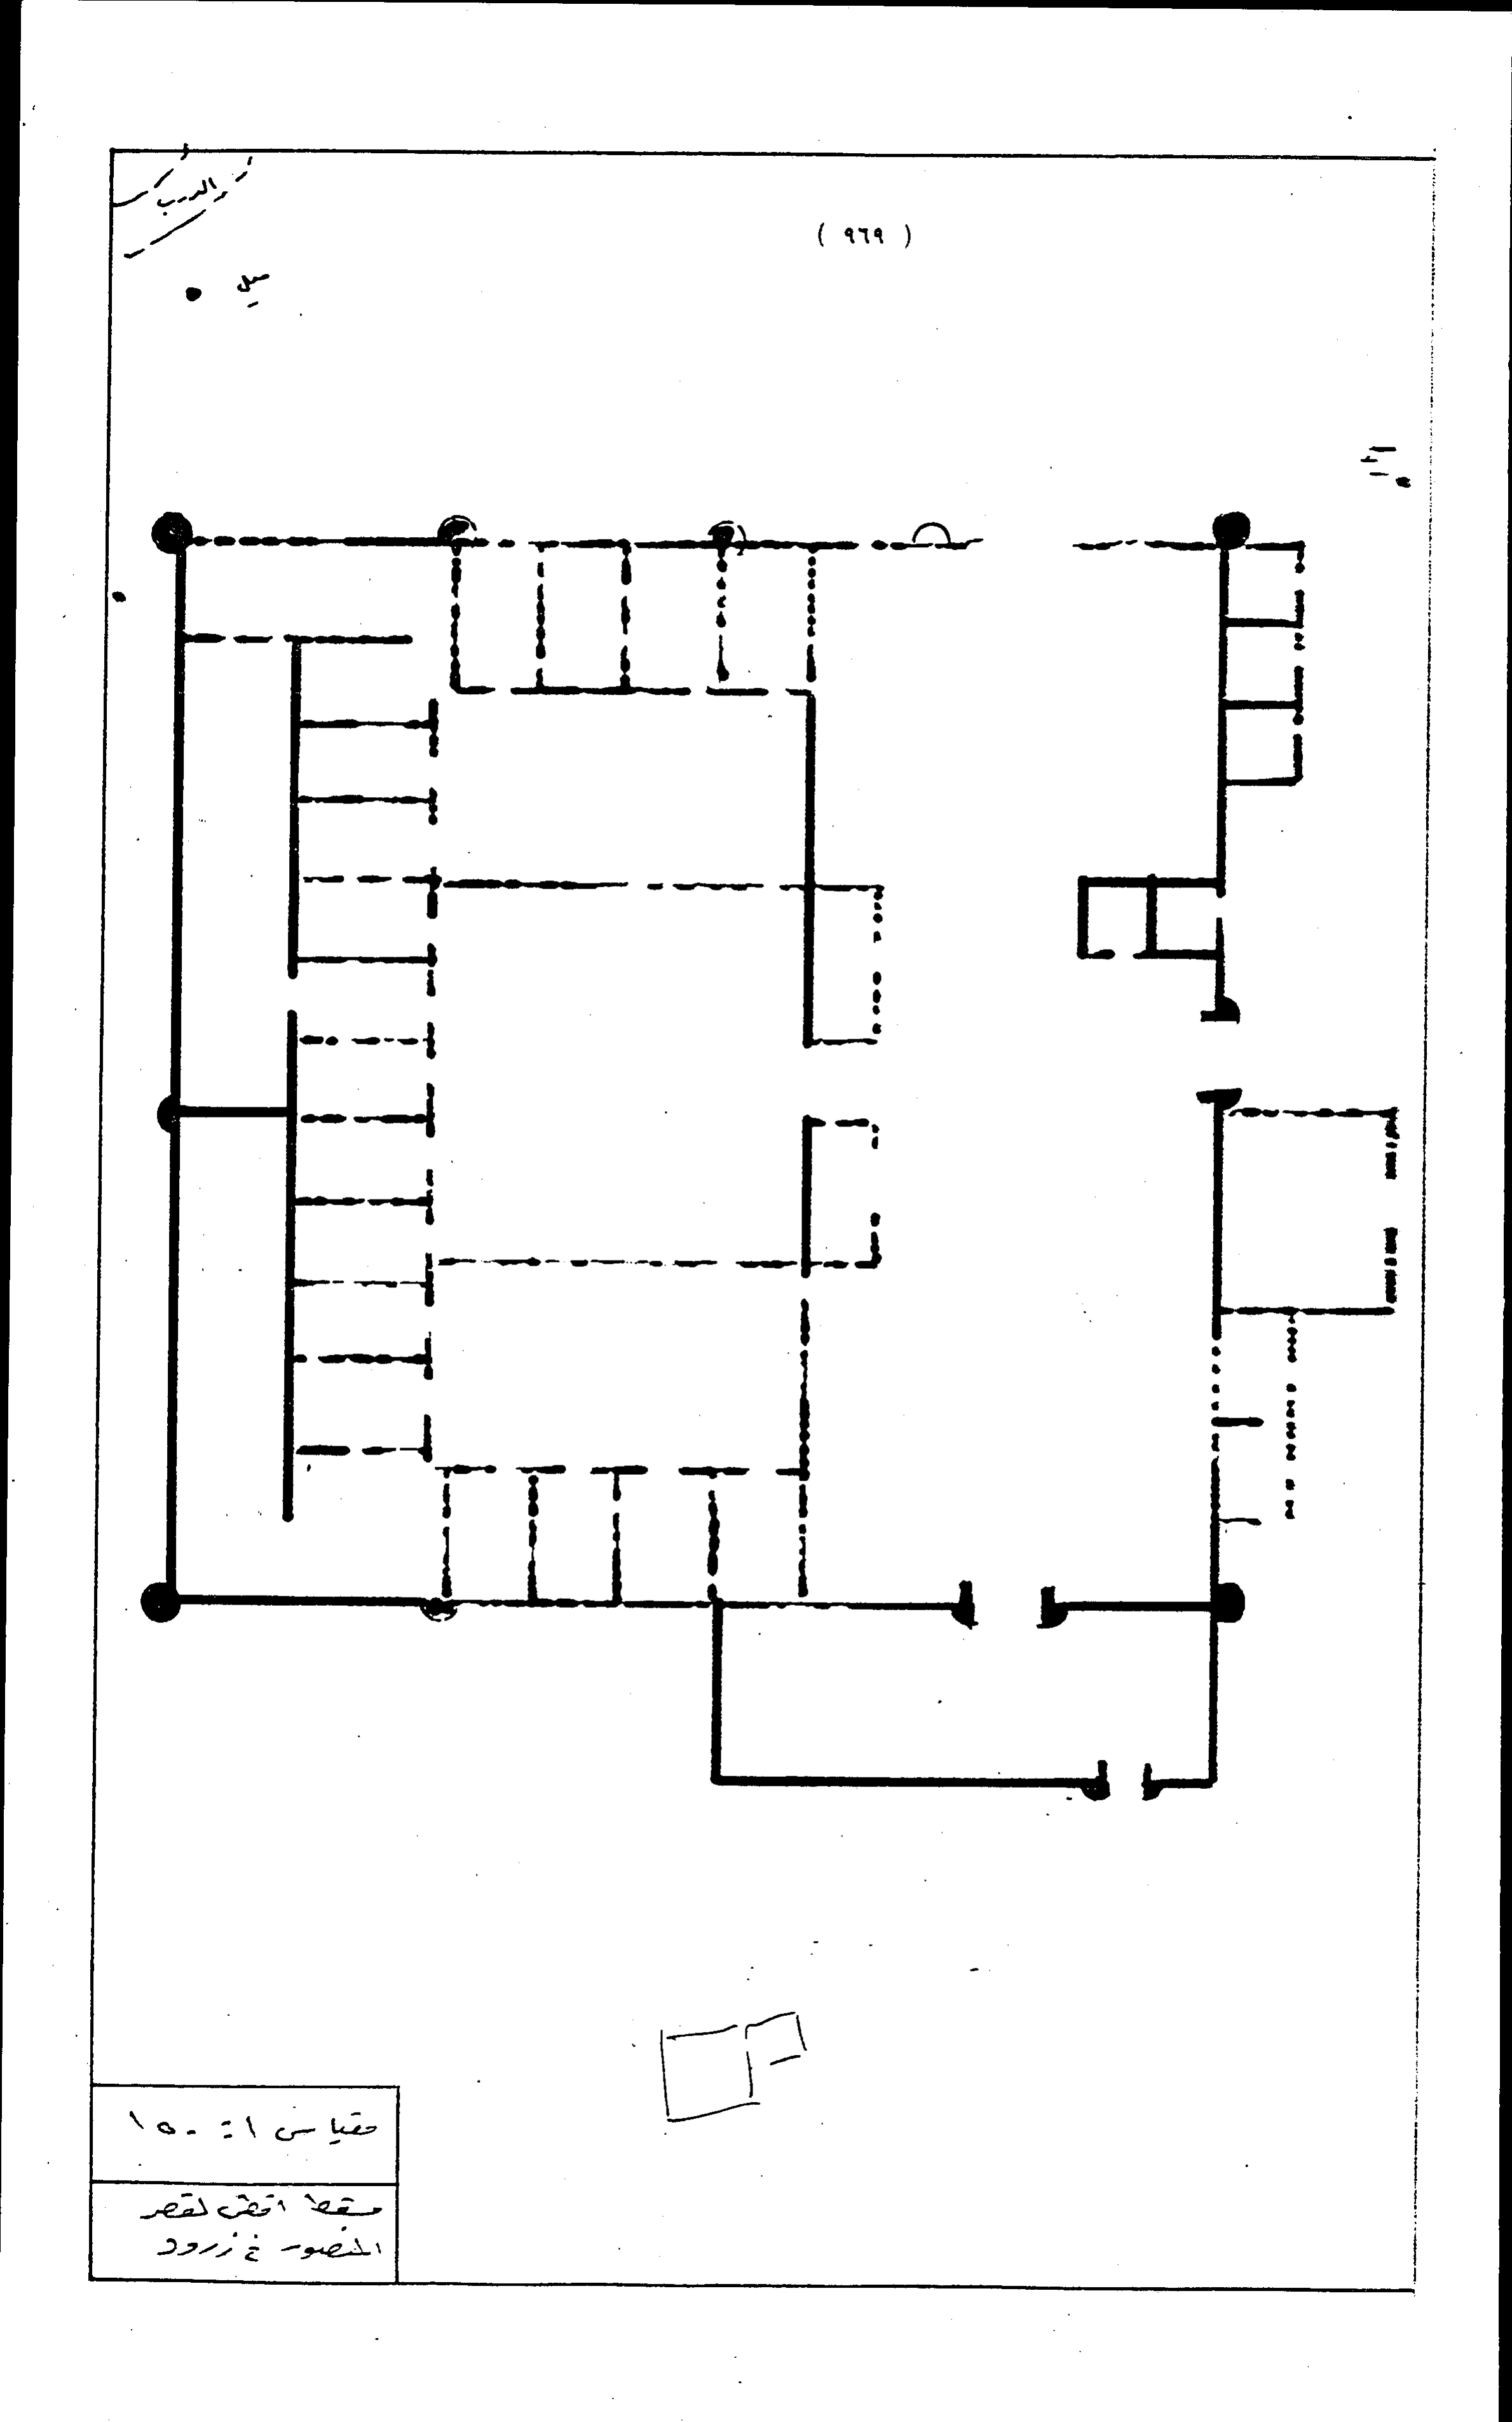 ( ٩٦٩ )
والدرب
ميل
مقياس ١ : ١٥٠
مسقط افقي لقصر
المنصور في زرود